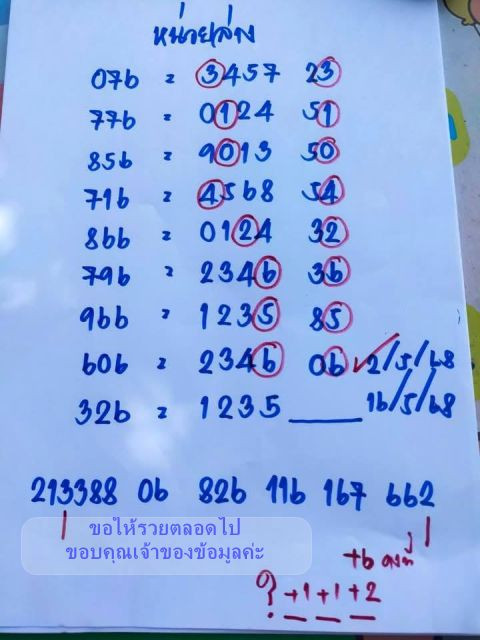 หน่วยล่าง
076 = 3457 23
776 = 0124 51
856 = 9013 50
716 = 4568 54
866 = 0124 32
796 = 2346 36
966 = 1235 85
606 = 2346 06 ✓ 2/5/68
326 = 1235 ____ 16/5/68
213388 06 826 116 167 662
ขอให้รวยตลอดไป
ขอบคุณเจ้าของข้อมูลค่ะ
+6
? +1 +1 +2